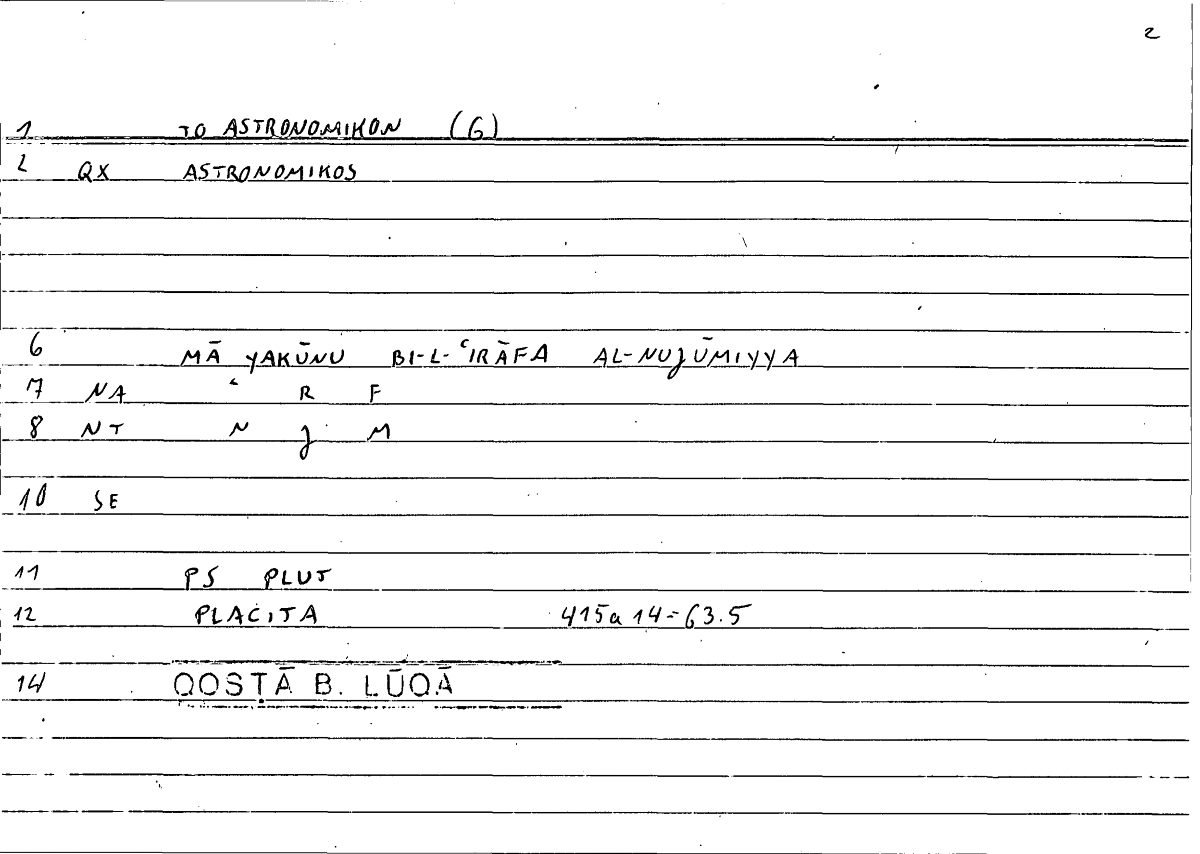 2
1 TO ASTRONOMIKON (G)
2 QX ASTRONOMIKOS
6 MĀ YAKŪNU BI-L-ʿIRĀFA AL-NUJŪMIYYA
7 NA ʿ R F
8 NT N J M
10 SE
11 PS PLUT
12 PLACITA 415a 14 = 63.5
14 QOSṬĀ B. LŪQĀ